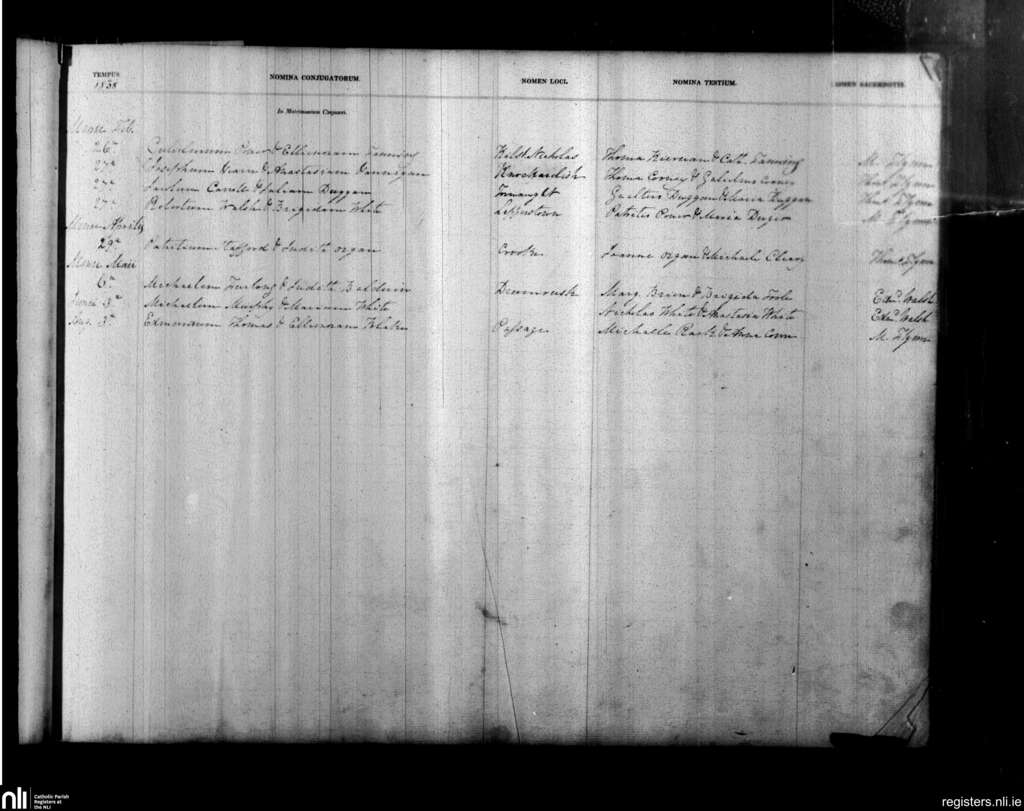 TEMPUS. NOMINA CONJUGATORUM. NOMEN LOCI. NOMINA TESTIUM. NOMEN SACERDOTIS.
1838
In Matrimonium Conjunxi.
Mense Feb.
26ᵃ Gulielmum Power & Ellienoram Fanning Kilst Nicholas Thoma Kiervan & Cath. Fanning M. Flynn
27ᵃ Josephum & Anastasiam Dunnigan Knockardish Thoma & Gulielmo Thos Flynn
27ᵃ Carroll & Juliam Duggan Gualtero Duggan & Maria Duggan Thos Flynn
27ᵃ Robertum Walsh & Brigidam White Leperstown Patritio Power & Maria M. Flynn
Mense Aprilis
29ᵃ Patritium Stafford & Judith Organ Crooke Joanne Organ & Michaele Cleary Thos Flynn
Mense Maii
6ᵃ Michaelem Furlong & Judith Baldwin Drumrusk Marg. Brien & Brigida Foole Edm. Walsh
Junii 3ᵃ Michaelem Murphy & Mariam White Nicholas White & Anastasia White Edm. Walsh
3ᵃ Edmundum Thomas & Ellienoram Passage Michaele & Anna M. Flynn
nli Catholic Parish
Registers at
the NLI
registers.nli.ie